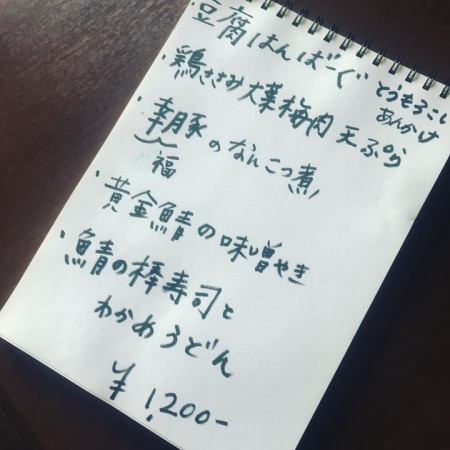 ・豆腐はんばーぐ とうもろこし
あんかけ
・鶏ささみ大葉梅肉天ぷら
・朝豚のなんこつ煮
福
・黄金鯖の味噌やき
・鯖の棒寿司と
わかめうどん
¥1,200-